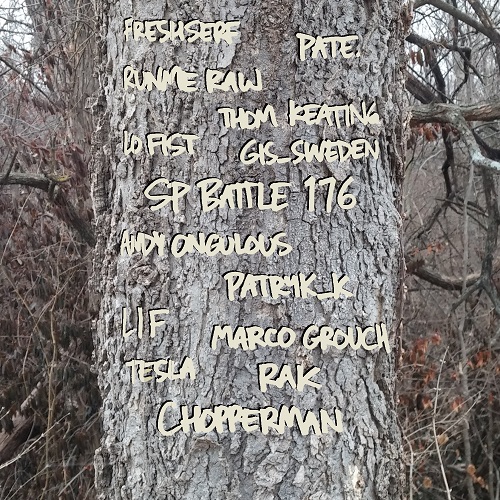 FRESHSERF
PATE.
RUNME RAW
THOM KEATING
LO FIST
GIS_SWEDEN
SP BATTLE 176
ANDY ONGULOUS
PATRYK_K
LIF
MARCO GROUCH
TESLA
RAK
CHOPPERMAN